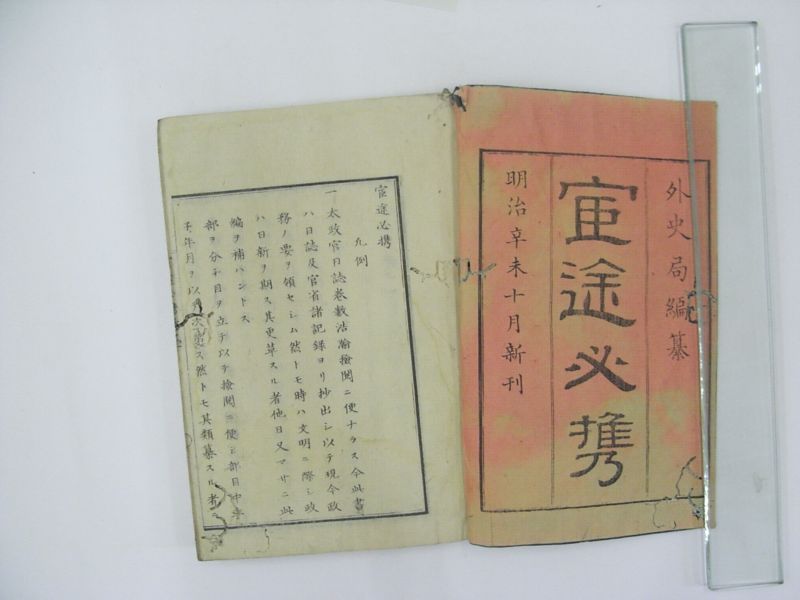 外史局編纂
宦途必携
明治辛未十月新刊
宦途必携
凡例
一太政官日誌巻數浩瀚撿閲ニ便ナラス今此書
ハ日誌及官省諸記録ヨリ抄出シ以テ現今政
務ノ要ヲ領セシム然トモ時ハ文明ニ際シ政
ハ日新ヲ期ス其更革スル者他日又マサニ此
編ヲ補ハントス
部ヲ分チ目ヲ立チ以テ撿閲ニ便シ部目中
年月ヲ以テ次第ス然トモ其類纂スル者ニ